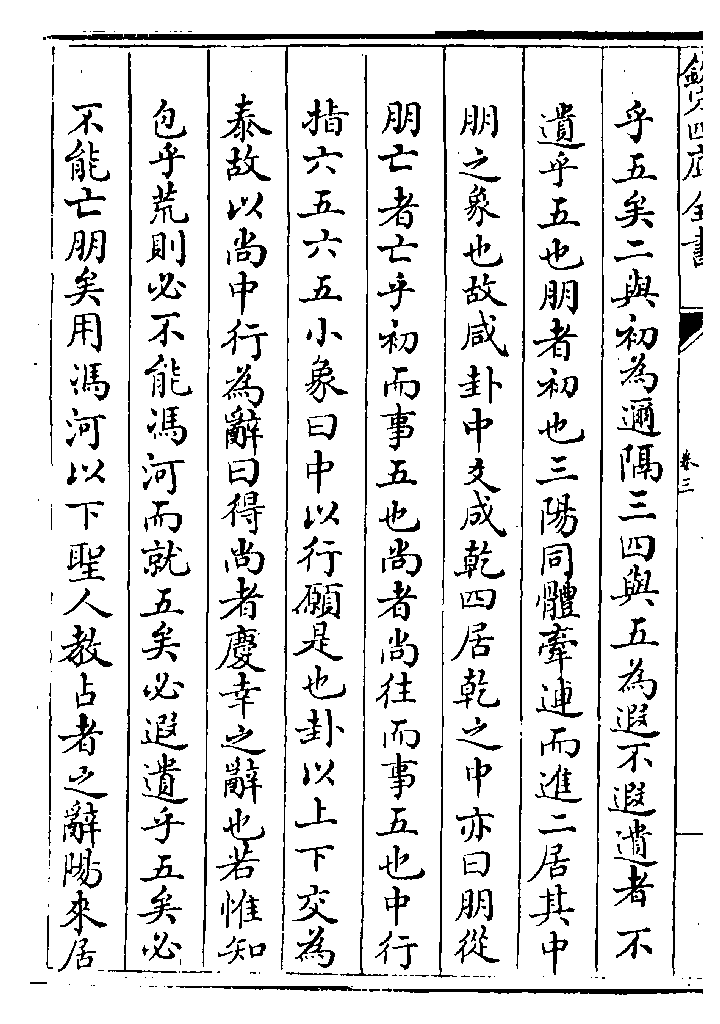 欽定四庫全書
卷三
乎五矣二與初為邇隔三四與五為遐不遐遺者不
遺乎五也朋者初也三陽同體牽連而進二居其中
朋之象也故咸卦中爻成乾四居乾之中亦曰朋從
朋亡者亡乎初而事五也尚者尚往而事五也中行
指六五六五小象曰中以行願是也卦以上下交為
泰故以尚中行為辭曰得尚者慶幸之辭也若惟知
包乎荒則必不能馮河而就五矣必遐遺乎五矣必
不能亡朋矣用馮河以下聖人教占者之辭陽來居